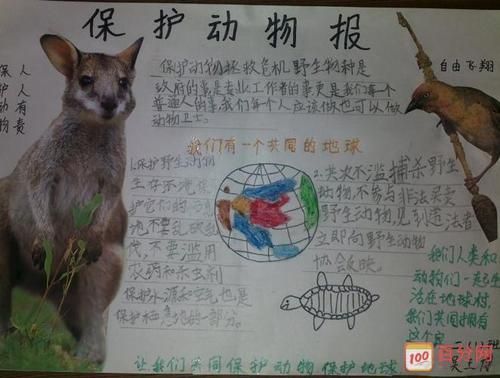 保护动物报
保护动物拯救危机野生物种是
政府的事是专业工作者的事更是我们每个
普通人的事我们每个人应该做也可以做
动物卫士。
保护动物
人人有责
自由飞翔
我们有一个共同的地球
1.保护野生动物
生存环境保
护它们的
地不要乱砍
伐,不要滥用
农药和杀虫剂
保护水源和空气也是
保护栖息地的一部分。
2.其次不滥捕杀野生
动物,不参与非法买卖
野生动物,见到违法者
立即向野生动物
协会反映。
我们人类和
动物们一起生
活在地球村,
我们共同拥有
这个家
让我们共同保护动物保护地球
100 百分网